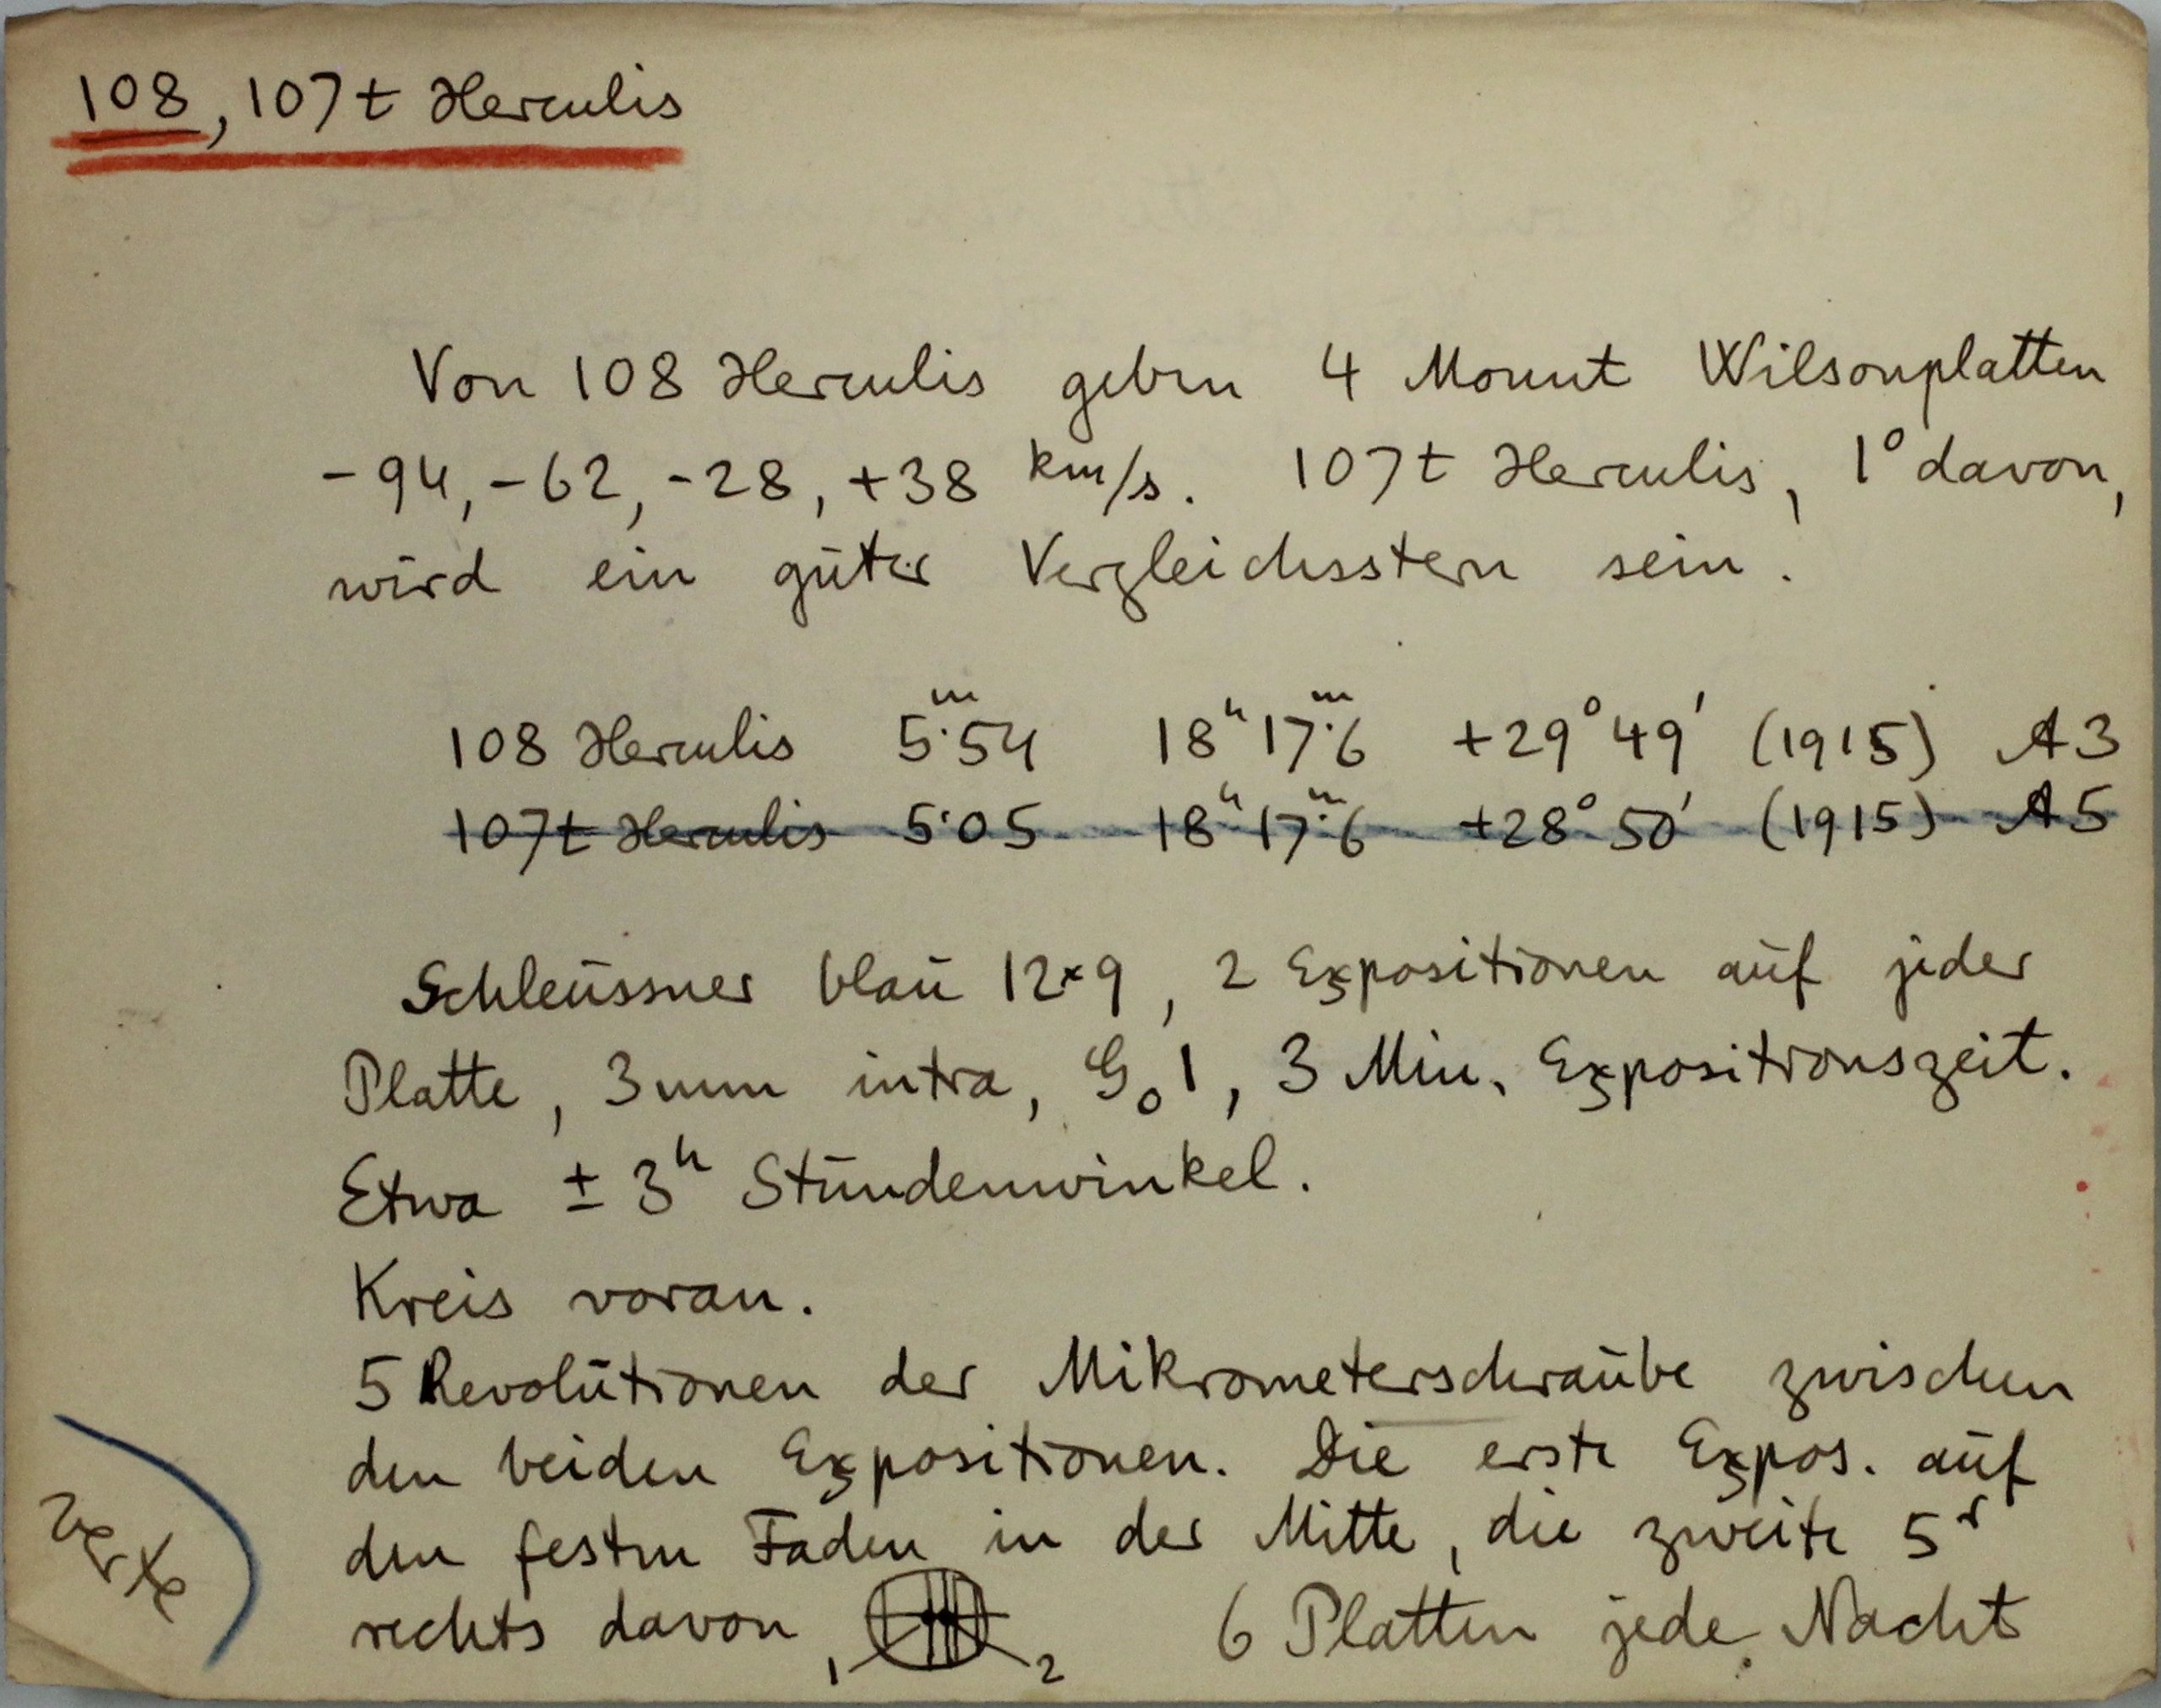 108, 107 t Herculis
Von 108 Herculis geben 4 Mount Wilsonplatten
-94, -62, -28, +38 km/s. 107 t Herculis, 1° davon,
wird ein guter Vergleichsstern sein.
108 Herculis 5ᵐ.54 18ʰ17ᵐ.6 +29°49′ (1915) A3
107 t Herculis 5.05 18ʰ17ᵐ.6 +28°50′ (1915) A5
Schleussner blau 12×9, 2 Expositionen auf jeder
Platte, 3mm intra, G₀1, 3 Min. Expositionszeit.
Etwa ± 3ʰ Stundenwinkel.
Kreis voran.
5 Revolutionen der Mikrometerschraube zwischen
den beiden Expositionen. Die erste Expos. auf
den festen Faden in der Mitte, die zweite 5ʳ
rechts davon, 1 2 6 Platten jede Nacht